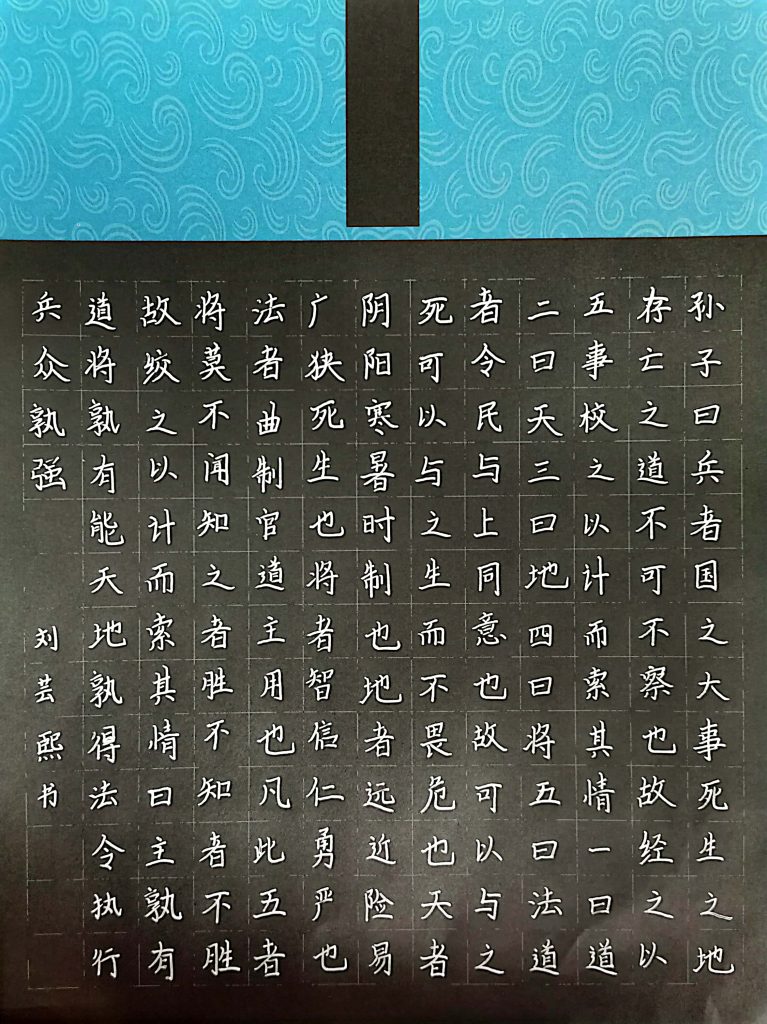 孙子曰兵者国之大事死生之地
存亡之道不可不察也故经之以
五事校之以计而索其情一曰道
二曰天三曰地四曰将五曰法道
者令民与上同意也故可以与之
死可以与之生而不畏危也天者
阴阳寒暑时制也地者远近险易
广狭死生也将者智信仁勇严也
法者曲制官道主用也凡此五者
将莫不闻知之者胜不知者不胜
故绞之以计而索其情曰主孰有
道将孰有能天地孰得法令执行
兵众孰强 刘芸熙书